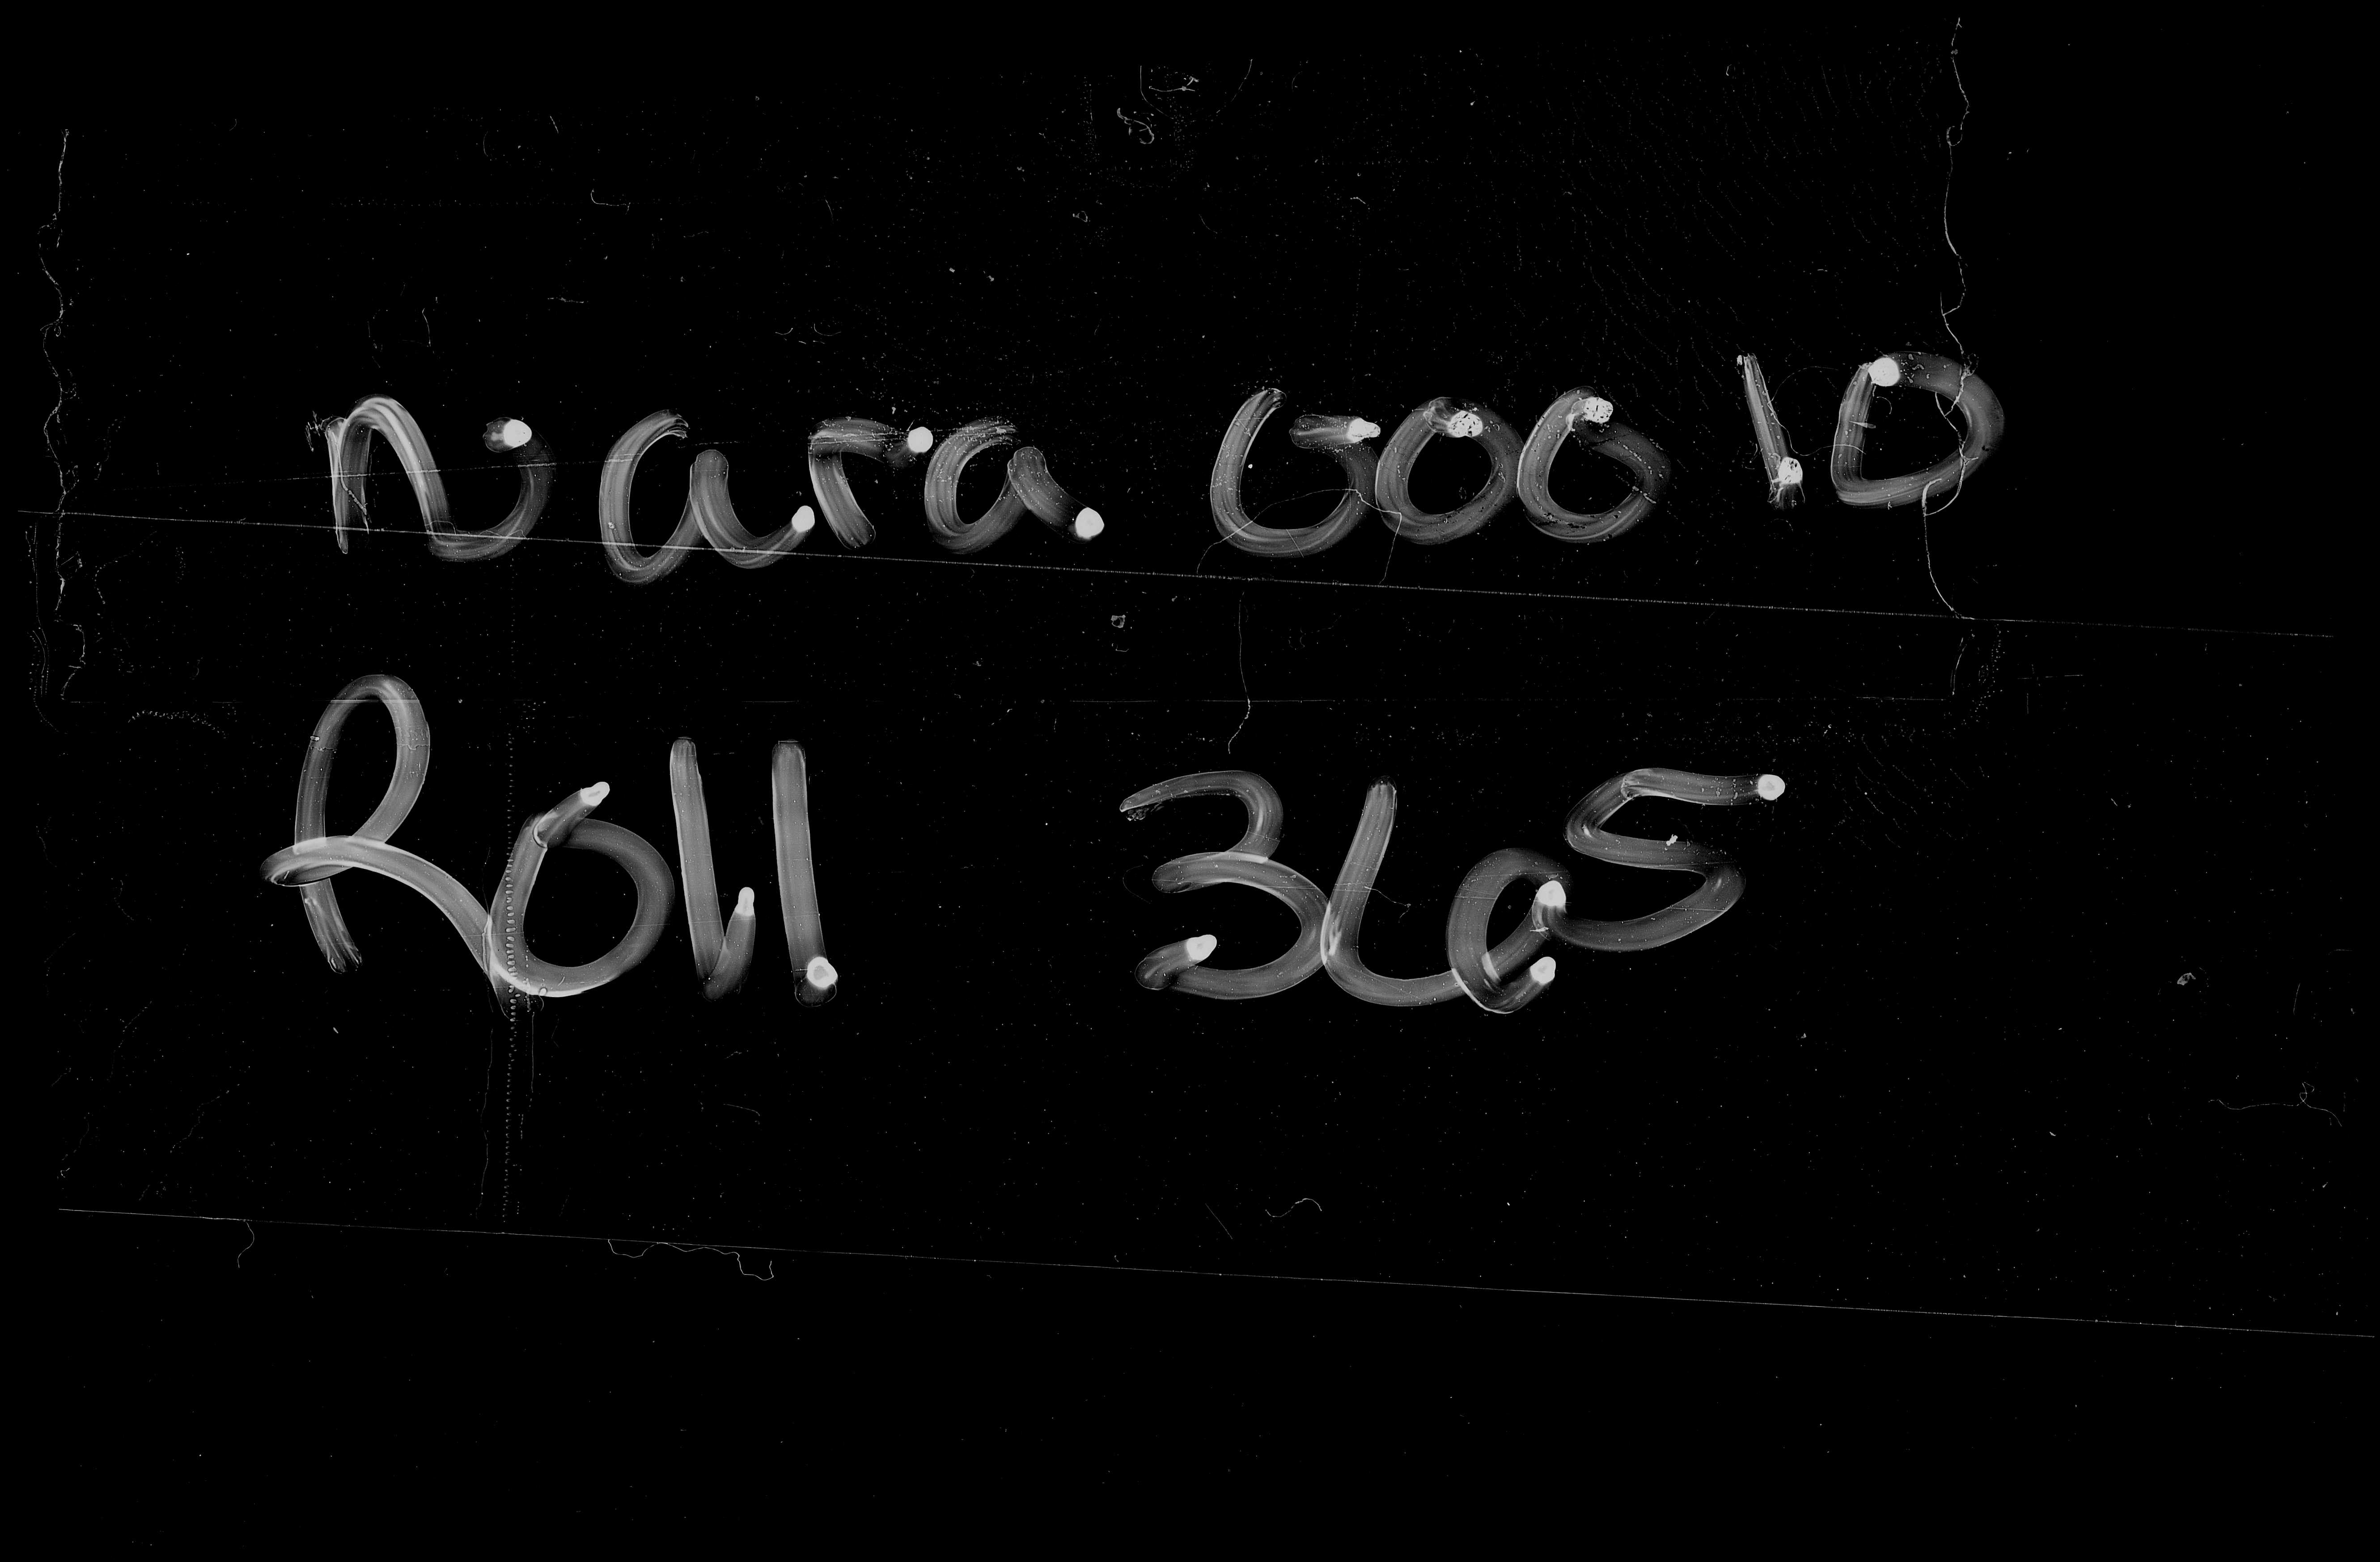 Nara 600 10
Roll 365